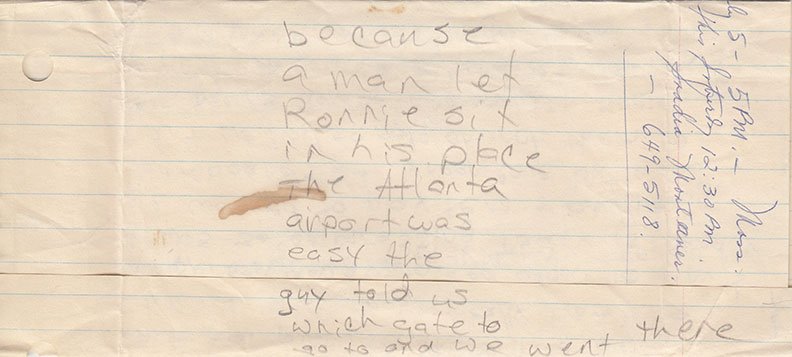 because
a man let
Ronnie sit
in his place
The Atlanta
arport was
easy the
guy told us
which gate to
go to and we went there
5 - 5 PM. - Mass.
This Saturday 12:30 Pm.
- 649-5118.